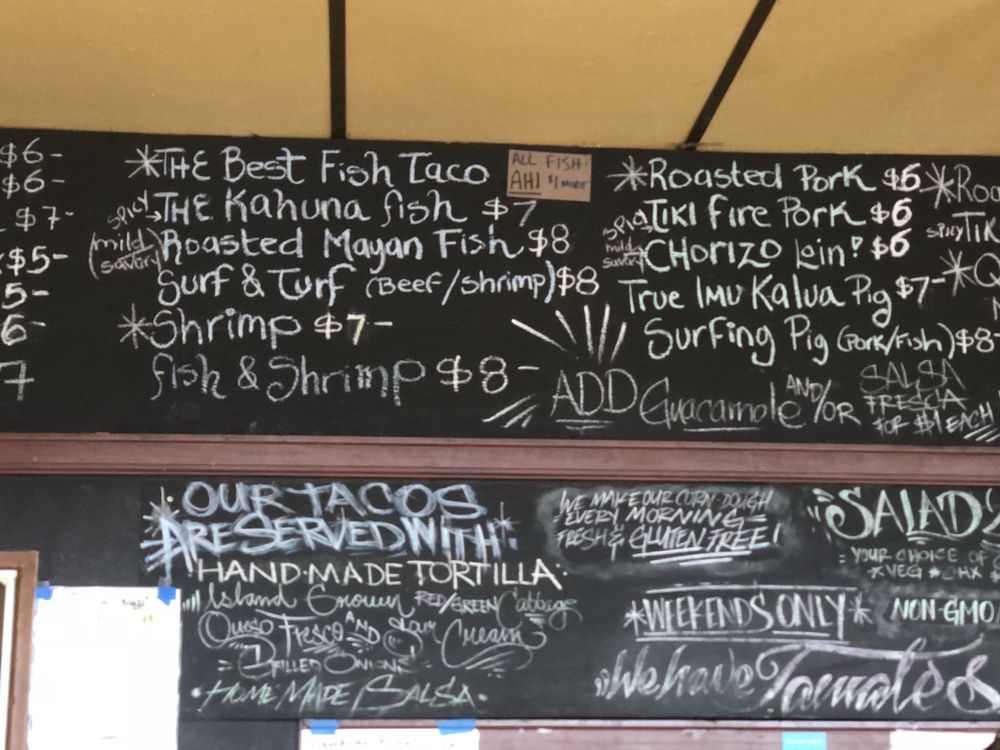 $6-
$6-
$7-
$5-
5-
6-
7
*THE Best Fish Taco
ALL FISH.
AHI $1 MORE
SPICY THE Kahuna fish $7
(mild savory) Roasted Mayan Fish $8
Surf & Turf (Beef/Shrimp) $8
*Shrimp $7-
fish & Shrimp $8-
*Roasted Pork $6
SPICY TIKI Fire Pork $6
mild savory CHORIZO Loin! $6
True IMU Kalua Pig $7-
Surfing Pig (Pork/Fish) $8-
*Roa
SPICY TIK
*Q
ADD Guacamole AND/OR SALSA FRESCA FOR $1 EACH
OUR TACOS
ARE SERVED WITH
HAND-MADE TORTILLA
Island Grown RED/GREEN Cabbage
Queso Fresco AND Sour Cream
GRILLED ONIONS
HOME MADE SALSA.
WE MAKE OUR CORN DOUGH
EVERY MORNING
FRESH & GLUTEN FREE!
*WEEKENDS ONLY*
We have Tamales
SALADS
YOUR CHOICE OF
*VEG *CHX *
NON-GMO